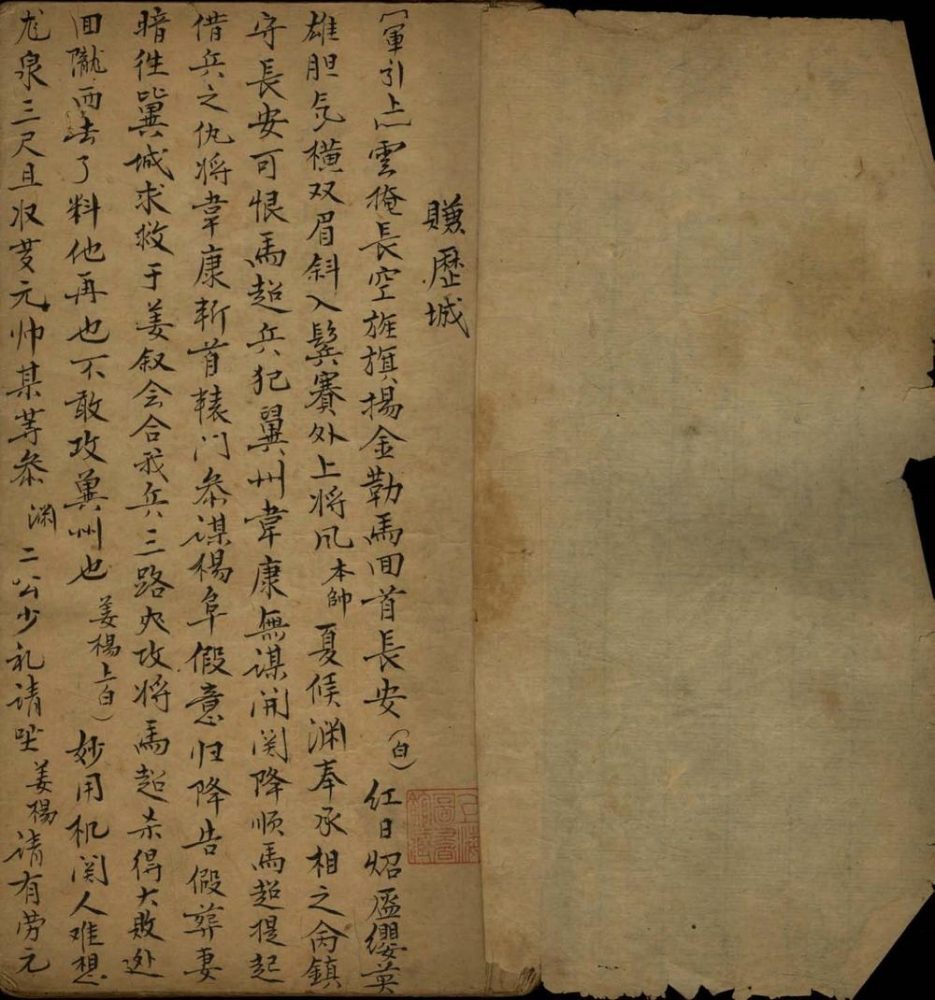 賺歷城
〔軍引上〕雲掩長空旌旗揚金勒馬回首長安（白）紅日炤盔纓英
雄胆気橫双眉斜入鬓賽外上将凡本帥夏候渊奉承相之命鎮
守長安可恨馬超兵犯翼州韋康無谋開関降顺馬超提起
借兵之仇将韋康斬首辕门叅谋楊阜假意归降告假葬妻
暗徃冀城求救于姜叙会合我兵三路夾攻将馬超杀得大敗迯
回隴西去了料他再也不敢攻冀州也姜楊上白）妙用机関人难想
龙泉三尺且收芟元帅某等叅渊二公少礼请坐姜楊请有劳元